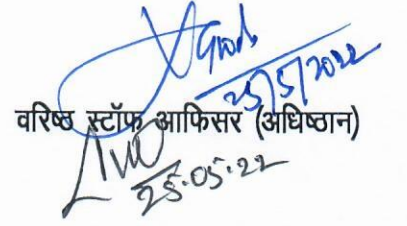 25/5/2022
वरिष्ठ स्टॉफ आफिसर (अधिष्ठान)
25.05.22